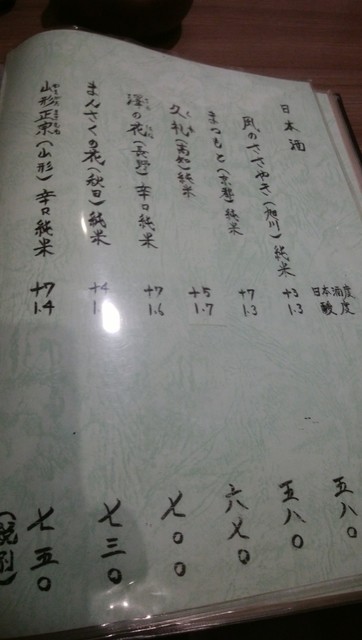 日本酒 日本酒度 酸度
風のささやき(旭川)純米 +3 1.3 五八〇
まつもと(京都)純米 +7 1.3 五八〇
久礼(高知)純米 +5 1.7 六七〇
澤の花(長野)辛口純米 +7 1.6 七〇〇
まんさくの花(秋田)純米 +4 七三〇
山形正宗(山形)辛口純米 +7 1.4 七五〇
(税別)